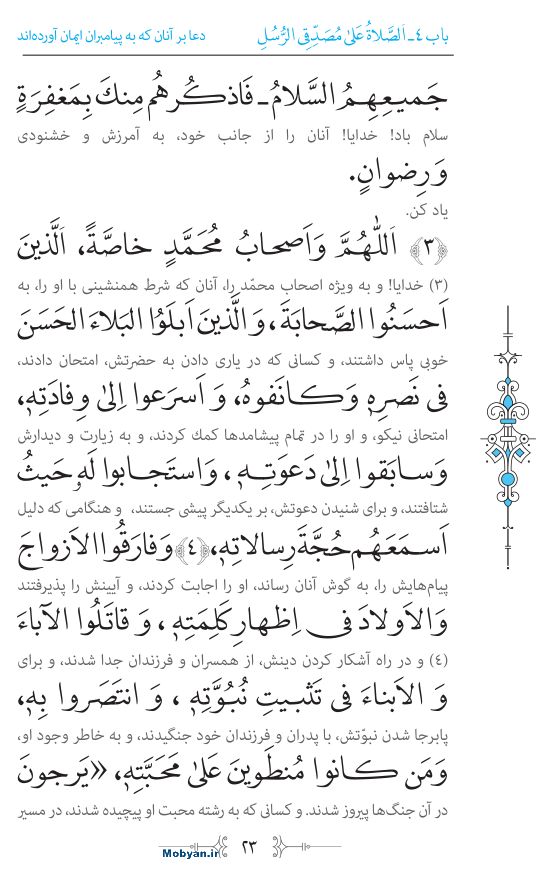 باب ٤ـ اَلصَّلاةُ عَلىٰ مُصَدِّقِى الرُّسُلِ دعا بر آنان که به پیامبران ایمان آورده‌اند
جَميعِهِمُ السَّلامُ ـ فَاذكُرهُم مِنكَ بِمَغفِرَةٍ
سلام باد! خدایا! آنان را از جانب خود، به آمرزش و خشنودی
وَ رِضوانٍ.
یاد کن.
﴿٣﴾ اَللّٰهُمَّ وَ اَصحابُ مُحَمَّدٍ خاصَّةً، اَلَّذينَ
(۳) خدایا! و به ویژه اصحاب محمّد را، آنان که شرط همنشینی با او را، به
اَحسَنُوا الصَّحابَةَ، وَ الَّذينَ اَبلَوُا البَلاءَ الحَسَنَ
خوبی پاس داشتند، و کسانی که در یاری دادن به حضرتش، امتحان دادند،
فى نَصرِهٖ وَ كانَفوهُ، وَ اَسرَعوا اِلىٰ وِفادَتِهٖ،
امتحانی نیکو، و او را در تمام پیشامدها کمك کردند، و به زیارت و دیدارش
وَ سابَقوا اِلىٰ دَعوَتِهٖ، وَ استَجابوا لَهٗ حَيثُ
شتافتند، و برای شنیدن دعوتش، بر یکدیگر پیشی جستند، و هنگامی که دلیل
اَسمَعَهُم حُجَّةَ رِسالاتِهٖ، ﴿٤﴾ وَ فارَقُوا الاَزواجَ
پیام‌هایش را، به گوش آنان رساند، او را اجابت کردند، و آیینش را پذیرفتند
وَ الاَولادَ فى اِظهارِ كَلِمَتِهٖ، وَ قاتَلُوا الآباءَ
(٤) و در راه آشکار کردن دینش، از همسران و فرزندان جدا شدند، و برای
وَ الاَبناءَ فى تَثبيتِ نُبُوَّتِهٖ، وَ انتَصَروا بِهٖ،
پابرجا شدن نبوّتش، با پدران و فرزندان خود جنگیدند، و به خاطر وجود او،
وَ مَن كانوا مُنطَوينَ عَلىٰ مَحَبَّتِهٖ، «يَرجونَ
در آن جنگ‌ها پیروز شدند. و کسانی که به رشته محبت او پیچیده شدند، در مسیر
۲۳
Mobyan.ir